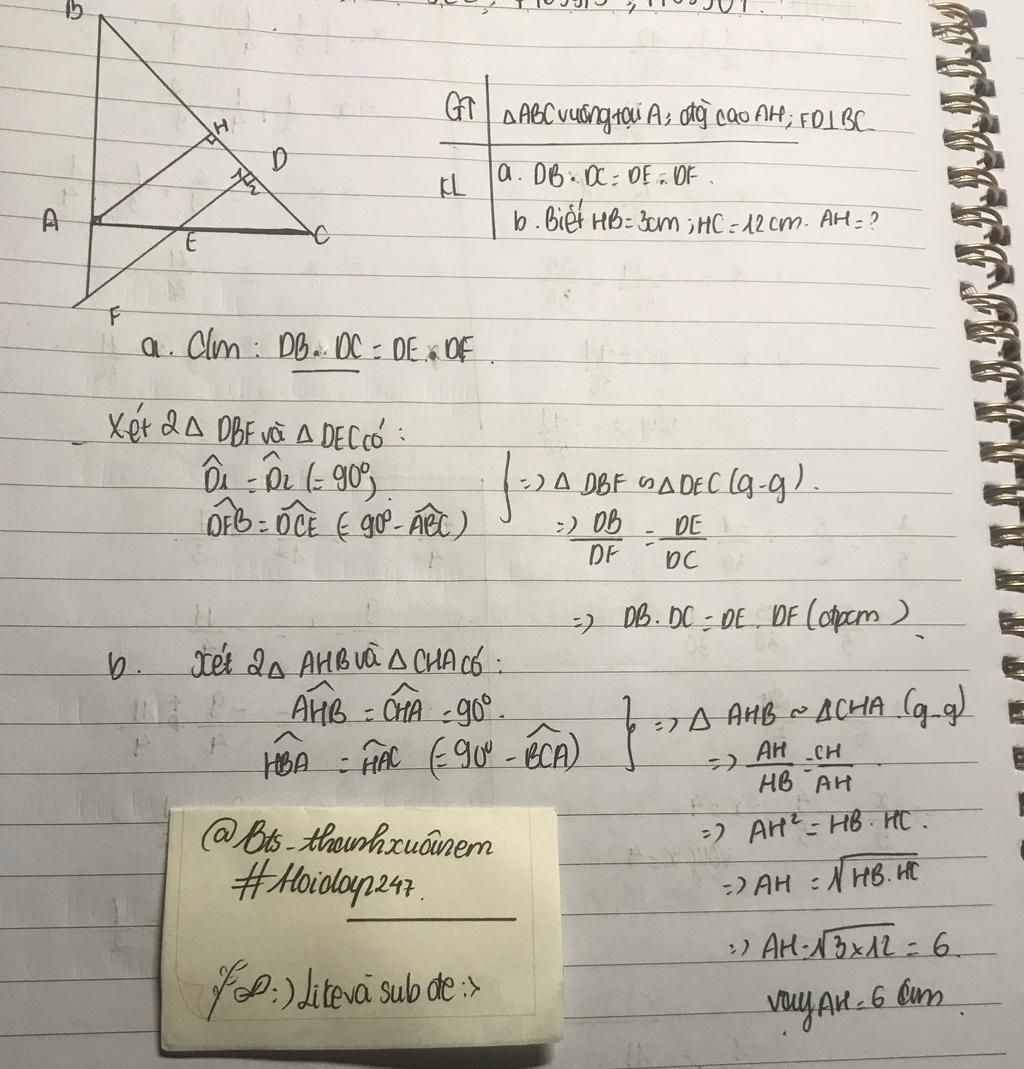 B
H
D
1 2
A
E
C
F
GT | ΔABC vuông tại A; đg cao AH; FD⊥BC
KL | a. DB.DC = DE.DF.
b. Biết HB = 3cm; HC = 12cm. AH = ?
a. C/m: DB.DC = DE.DF.
Xét 2Δ DBF và Δ DEC có:
D̂1 = D̂2 (= 90°)
DFB̂ = DCÊ (= 90° - ABĈ)
} => Δ DBF ∽ Δ DEC (g-g).
=> DB/DF = DE/DC
=> DB.DC = DE.DF (đpcm)
b. Xét 2Δ AHB và Δ CHA có:
AHB̂ = CHÂ = 90°.
HBÂ = HAĈ (= 90° - BCÂ)
} => Δ AHB ~ ΔCHA (g-g)
=> AH/HB = CH/AH
=> AH² = HB.HC.
=> AH = √HB.HC
=> AH = √3x12 = 6.
vậy AH = 6 cm
@Bts_thanhxuânem
#Hoidap247.
:) Like và sub đe :>